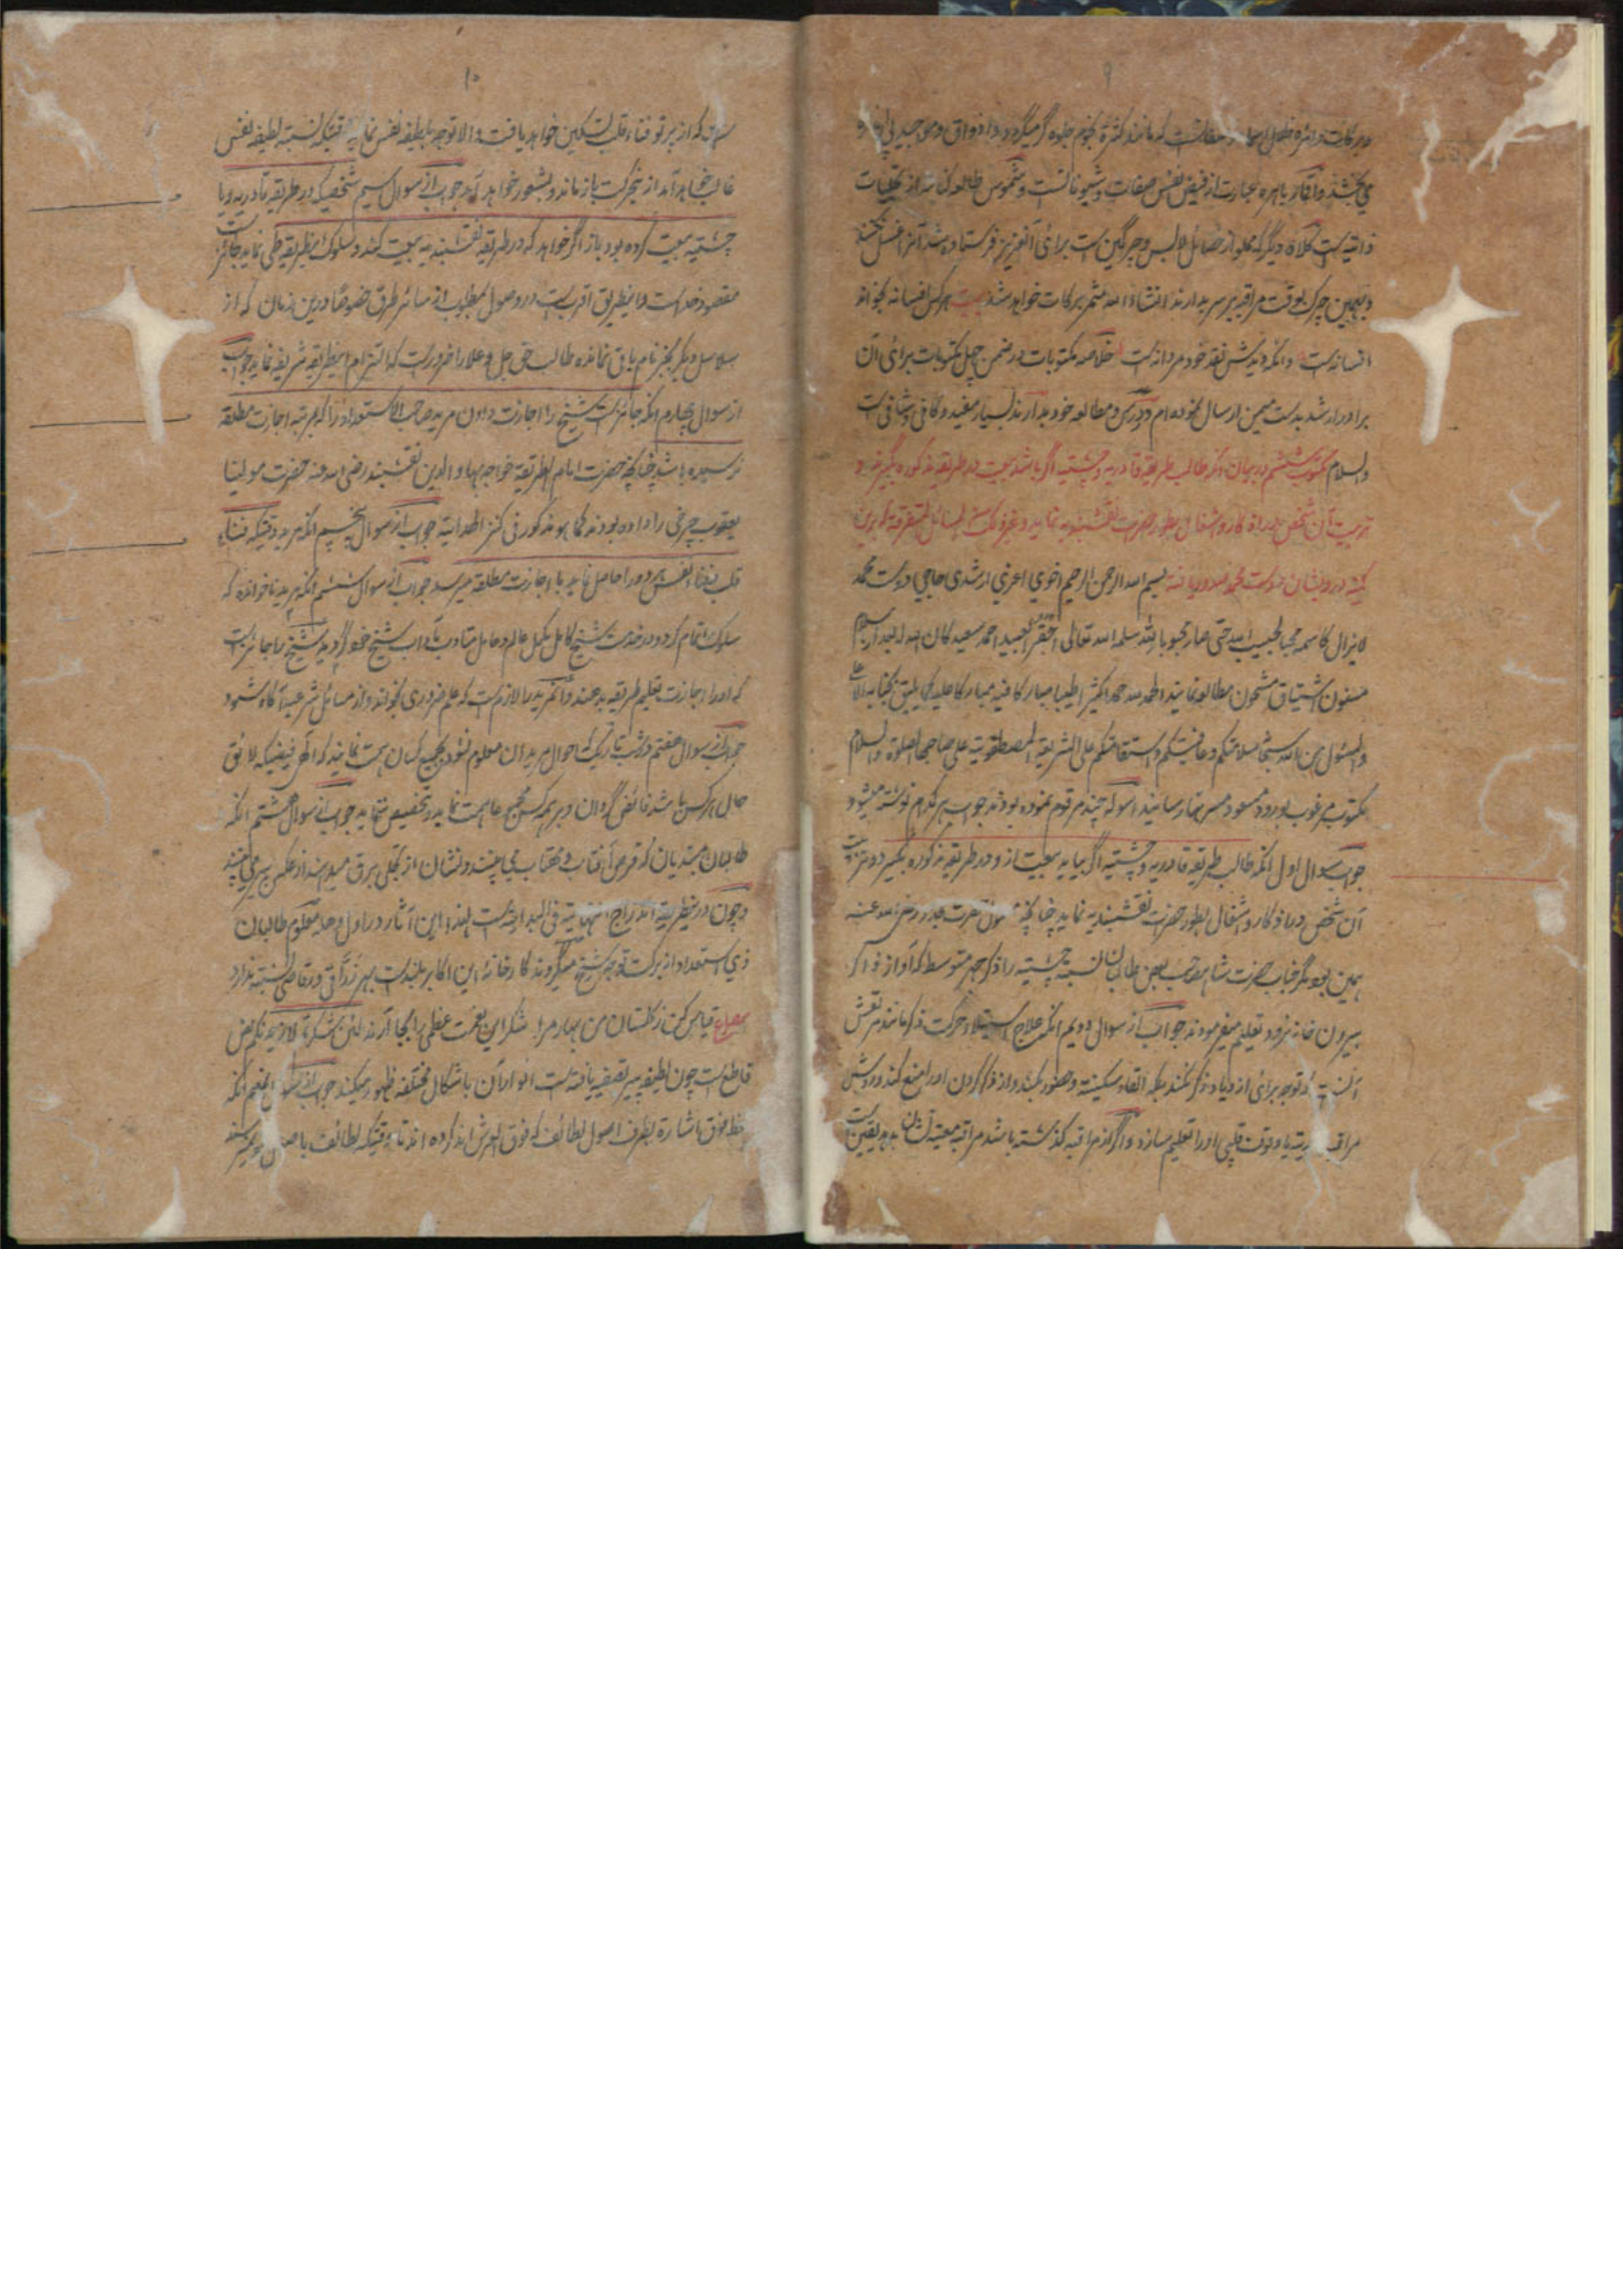 ۹
و برکات دائره ظلال اسما و صفاتست که مانند کثرة نجوم جلوه گر میگردد و اذواق و مواجید پی در پی
می بخشد و اقمار باهره عبارت از فیض نفس صفات و شیوناتست و شموس طالعه کنایه از تجلیات
ذاتیه است کلاه دیگر که مملو از خصائل لابس و چرگین است برای آنعزیز فرستاده شد آنرا غسل نکنند
و بهمین چرک بوقت مراقبه بر سر بدارند انشاء الله مثمر برکات خواهد شد بیت هر کس افسانه بخواند
افسانه است وانکه دیدش نقد خود مردانه است خلاصه مکتوبات در ضمن چهل مکتوبات برای آن
برادر ارشد بدست همین ارسال نموده ام در درس و مطالعه خود بدارند بسیار مفید و کافی و شافی است
والسلام مکتوب ششم در بیان آنکه طالب طریقه قادریه و چشتیه اگر باشد بیعت در طریقه مذکوره بگیرند و
تربیت آن شخص در اذکار و اشغال بطور حضرت نقشبندیه نماید و غیر ذلک من المسائل المتفرقة که باین
کمینه درویشان دوست محمد صدور یافته بسم الله الرحمن الرحیم اخوی اعزی ارشدی حاجی دوست محمد
لایزال کاسمه محبا لحبیب الله حتی صار محبوبا لله سلمه الله تعالی احقر العبید احمد سعید کان الله له بعد از سلام
مسنون اشتیاق مشحون مطالعه نمایند الحمد لله حمدا کثیرا طیبا مبارکا فیه مبارکا علیه کما یلیق بجنابه الاعلی
والمسئول من الله سبحانه سلامتکم و عافیتکم و استقامتکم علی الشریعة المصطفویة علی صاحبها الصلوة والسلام
مکتوب مرغوب بورود مسعود مسرتها رسانید اسوله چند مرقوم نموده بودند جواب هر کدام نوشته میشود
جواب سوال اول آنکه طالب طریقه قادریه و چشتیه اگر بیاید بیعت از و در طریقه مذکوره بگیرد و تربیت
آن شخص در اذکار و اشغال بطور حضرت نقشبندیه نماید چنانچه معمول حضرت مجدد رضی الله عنه
همین بود مگر جناب حضرت شاه صاحب بعض طالبان نسبة چشتیه را ذکر جهر متوسط که آواز ذاکر
بیرون خانه نرود تعلیم میفرمودند جواب از سوال دویم آنکه علاج استیلاء حرکت ذکر مانند مرتعش
آنست که توجه برای ازدیاد ذکر نکند بلکه القاء سکینه و حضور بکند و از ذکر کردن او را منع کند و روش
مراقبه احدیت یا وقوف قلبی او را تعلیم سازد و اگر از مراقبه گذشته باشد مراقبه معیت نشان بدهد یقین است
۱۰
است که از پرتو فناء قلب تسکین خواهد یافت و الا توجه بلطیفه نفس نماید وقتیکه نسبة لطیفه نفس
غالب خواهد آمد از تحرکت باز ماند و بشعور خواهد آمد جواب از سوال سیم شخصیکه در طریقه قادریه و یا
چشتیه بیعت کرده بود باز اگر خواهد که در طریقه نقشبندیه بیعت کند و سلوک اینطریقه طی نماید جائز است
مقصود خداست و اینطریق اقرب است در وصول بمطلوب از سائر طرق خصوصا درین زمان که از
سلاسل دیگر بجز نام باقی نمانده طالب حق جل و علا را ضرور است که التزام اینطریقه شریفه نماید جواب
از سوال چهارم آنکه جائز است شیخ را اجازت دادن مرید صاحب الاستعداد را که بمرتبه اجازت مطلقه
نرسیده باشد چنانچه حضرت امام الطریقه خواجه بهاء الدین نقشبند رضی الله عنه حضرت مولینا
یعقوب چرخی را داده بودند کما هو مذکور فی کنز الهدایة جواب از سوال پنجم آنکه مرید وقتیکه فناء
قلب و فناء نفس هر دو را حاصل نماید با اجازت مطلقه میرسد جواب از سوال ششم آنکه مرید ناخوانده که
سلوک اتمام کرد و در خدمت شیخ کامل مکمل عالم و عامل متادب بآداب شیخ خود گردید شیخ را جائز است
که او را اجازت تعلیم طریقه بدهند و آنمرید را لازم است که علم ضروری بخواند و از مسائل شرعیه آگاه شود
جواب از سوال هفتم در شب تاریک که احوال مریدان معلوم نشود بجمیع کسان همت نمایند که الهی فیضیکه لائق
حال هر کس باشد فائض گردان و بر همه کس مجموعا همت نماید و تخصیص ننماید جواب از سوال هشتم آنکه
طالبان مبتدیان که قرص آفتاب و مهتاب می بینند و نشان از تجلی برق میدهند از عکس پیر می بینند
و چون در ینطریقه اندراج النهایة فی البدایة است لهذا این آثار در اول وهله معلوم طالبان
ذی استعداد از برکت توجه شیخ میگردند کارخانه این اکابر بلند است بهر زراقی و رقاصی نسبتی ندارد
مصراع قیاس کن ز گلستان من بهار مرا شکر این نعمت عظمی را بجا آرند لئن شکرتم لازیدنکم نص
قاطع است چون لطیفه پیر تصفیه یافته است انوار آن باشکال مختلفه ظهور میکند جواب از سوال نهم آنکه
خط فوق اشارة بطرف اصول لطائف که فوق العرش اند کرده اند تا وقتیکه لطائف باصول خود نمیرسند